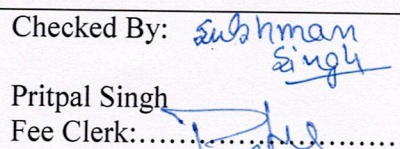 Checked By: Sukhman
Singh
Pritpal Singh
Fee Clerk:..............................